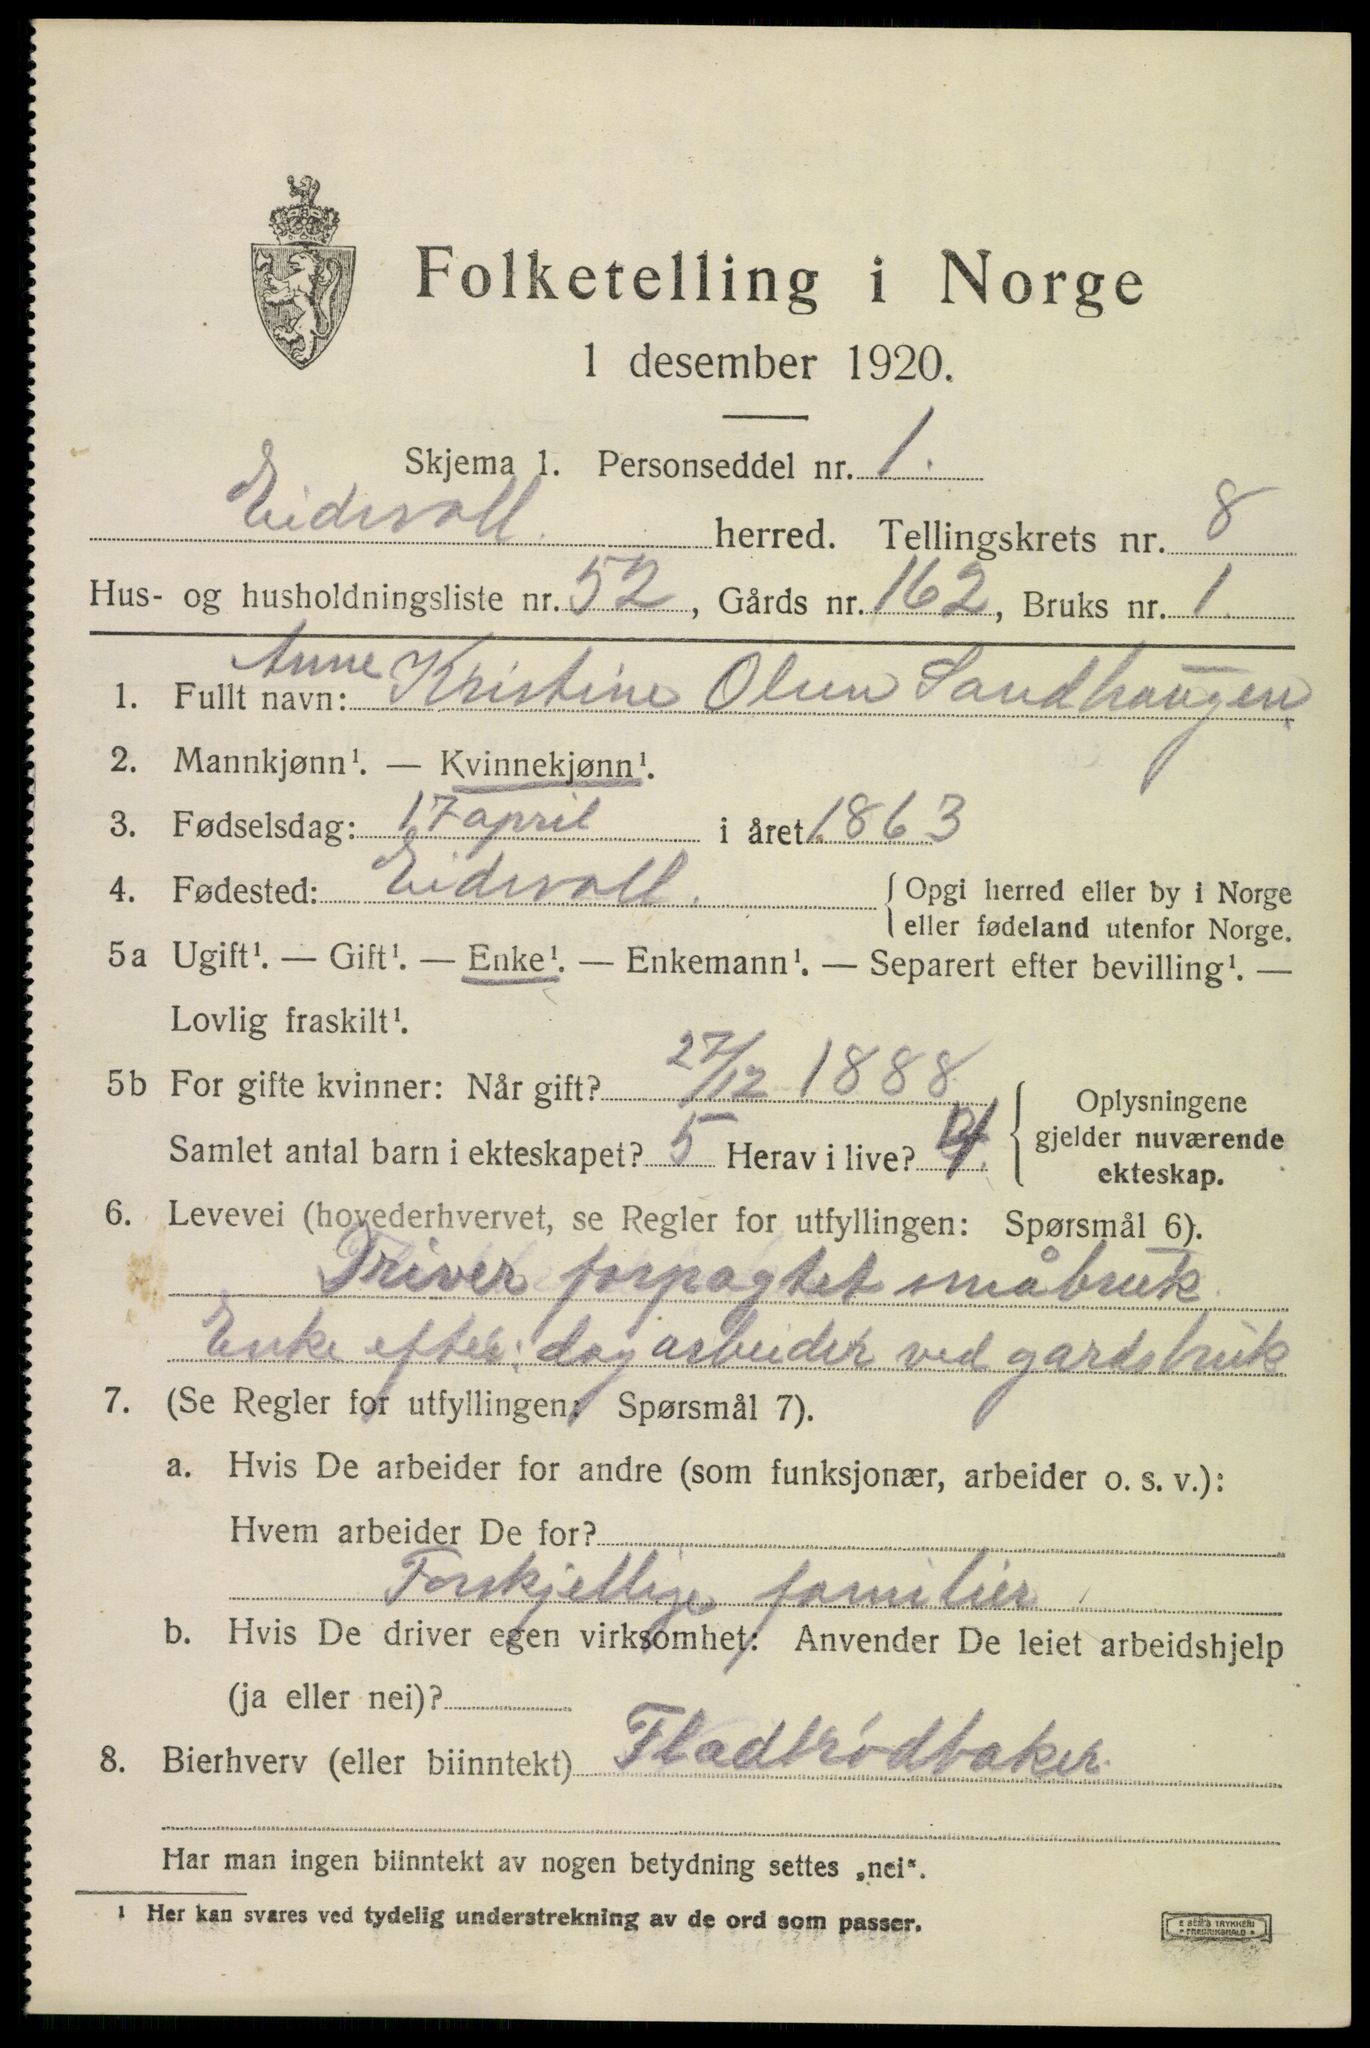 Folketelling i Norge
1 desember 1920.
Skjema 1. Personseddel nr. 1.
Eidsvoll herred. Tellingskrets nr. 8
Hus- og husholdningsliste nr. 52, Gårds nr. 162, Bruks nr. 1.
1. Fullt navn: Anne Kristine Olsen Sandhaugen
2. Mannkjønn¹. — Kvinnekjønn¹.
3. Fødselsdag: 17 april i året 1863
4. Fødested: Eidsvoll. Opgi herred eller by i Norge
eller fødeland utenfor Norge.
5a Ugift¹. — Gift¹. — Enke¹. — Enkemann¹. — Separert efter bevilling¹. —
Lovlig fraskilt¹.
5b For gifte kvinner: Når gift? 27/12 1888 Oplysningene
gjelder nuværende
ekteskap.
Samlet antal barn i ekteskapet? 5 Herav i live? 4.
6. Levevei (hovederhvervet, se Regler for utfyllingen: Spørsmål 6).
Driver forpagtet småbruk
Enke efter: dagarbeider ved gardsbruk
7. (Se Regler for utfyllingen: Spørsmål 7).
a. Hvis De arbeider for andre (som funksjonær, arbeider o. s. v.):
Hvem arbeider De for?
Forskjellige familier
b. Hvis De driver egen virksomhet: Anvender De leiet arbeidshjelp
(ja eller nei)?
8. Bierhverv (eller biinntekt) Fladbrødbaker.
Har man ingen biinntekt av nogen betydning settes „nei“.
¹ Her kan svares ved tydelig understrekning av de ord som passer.
E SEM'S TRYKKERI
• FREDRIKSHALD •